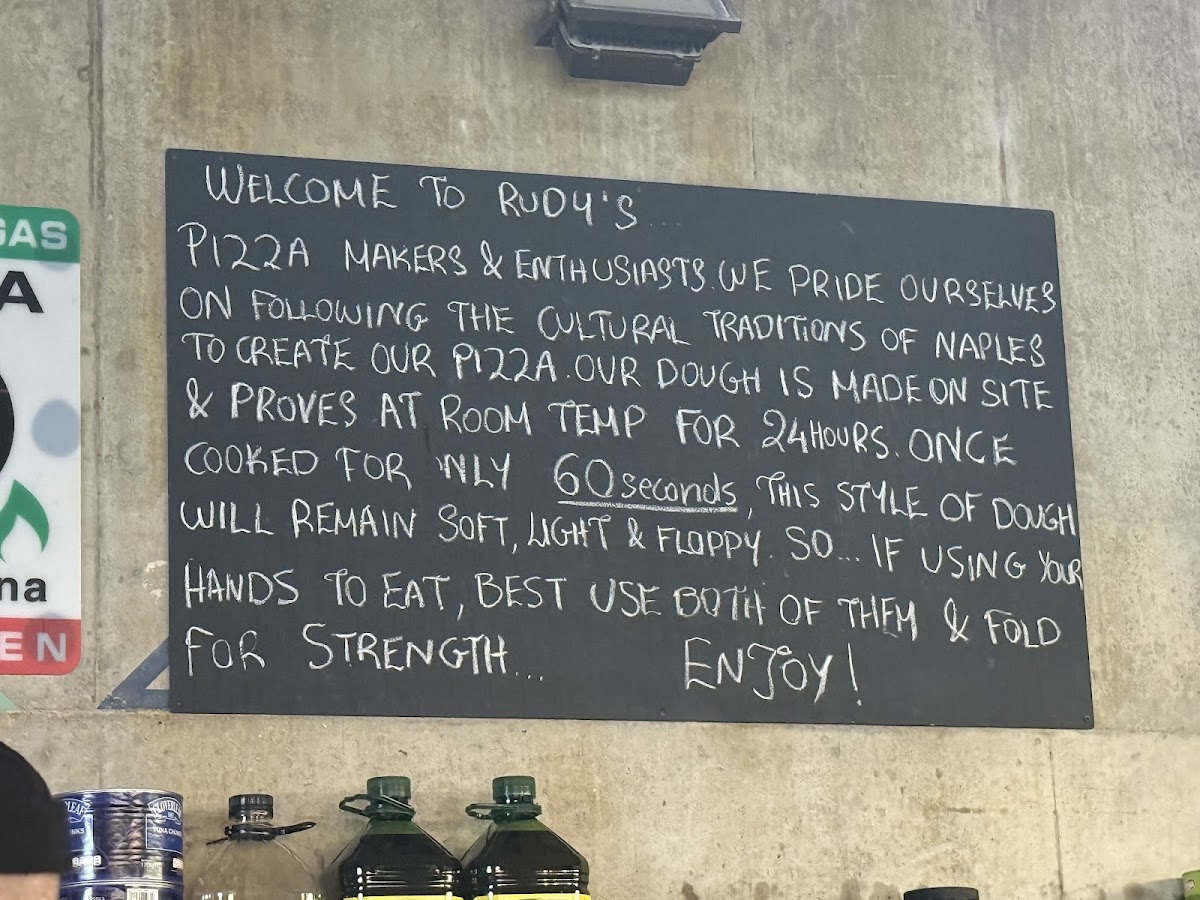 WELCOME TO RUDY'S....
PIZZA MAKERS & ENTHUSIASTS. WE PRIDE OURSELVES
ON FOLLOWING THE CULTURAL TRADITIONS OF NAPLES
TO CREATE OUR PIZZA. OUR DOUGH IS MADE ON SITE
& PROVES AT ROOM TEMP FOR 24HOURS. ONCE
COOKED FOR NLY 60 seconds, THIS STYLE OF DOUGH
WILL REMAIN SOFT, LIGHT & FLOPPY. SO... IF USING YOUR
HANDS TO EAT, BEST USE BOTH OF THEM & FOLD
FOR STRENGTH... ENJOY!
GAS
A
na
EN
TUNA CHUNKS